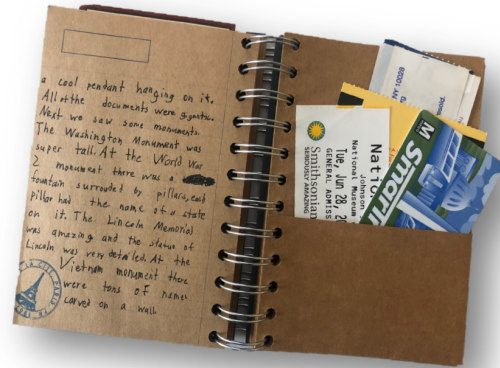 a cool pendant hanging on it.
All of the documents were gigantic.
Next we saw some monuments.
The Washington Monument was
super tall. At the World War
2 monument there was a
fountain surrouded by pillars, each
pillar had the name of a state
on it. The Lincoln Memorial
was amazing and the statue of
Lincoln was very detailed. At the
Vietnam monument there
were tons of names
carved on a wall
Smithsonian
SERIOUSLY AMAZING
Nati
Johnson
National Museum
Tue, Jun 28, 20
GENERAL ADMISS
M
Smart